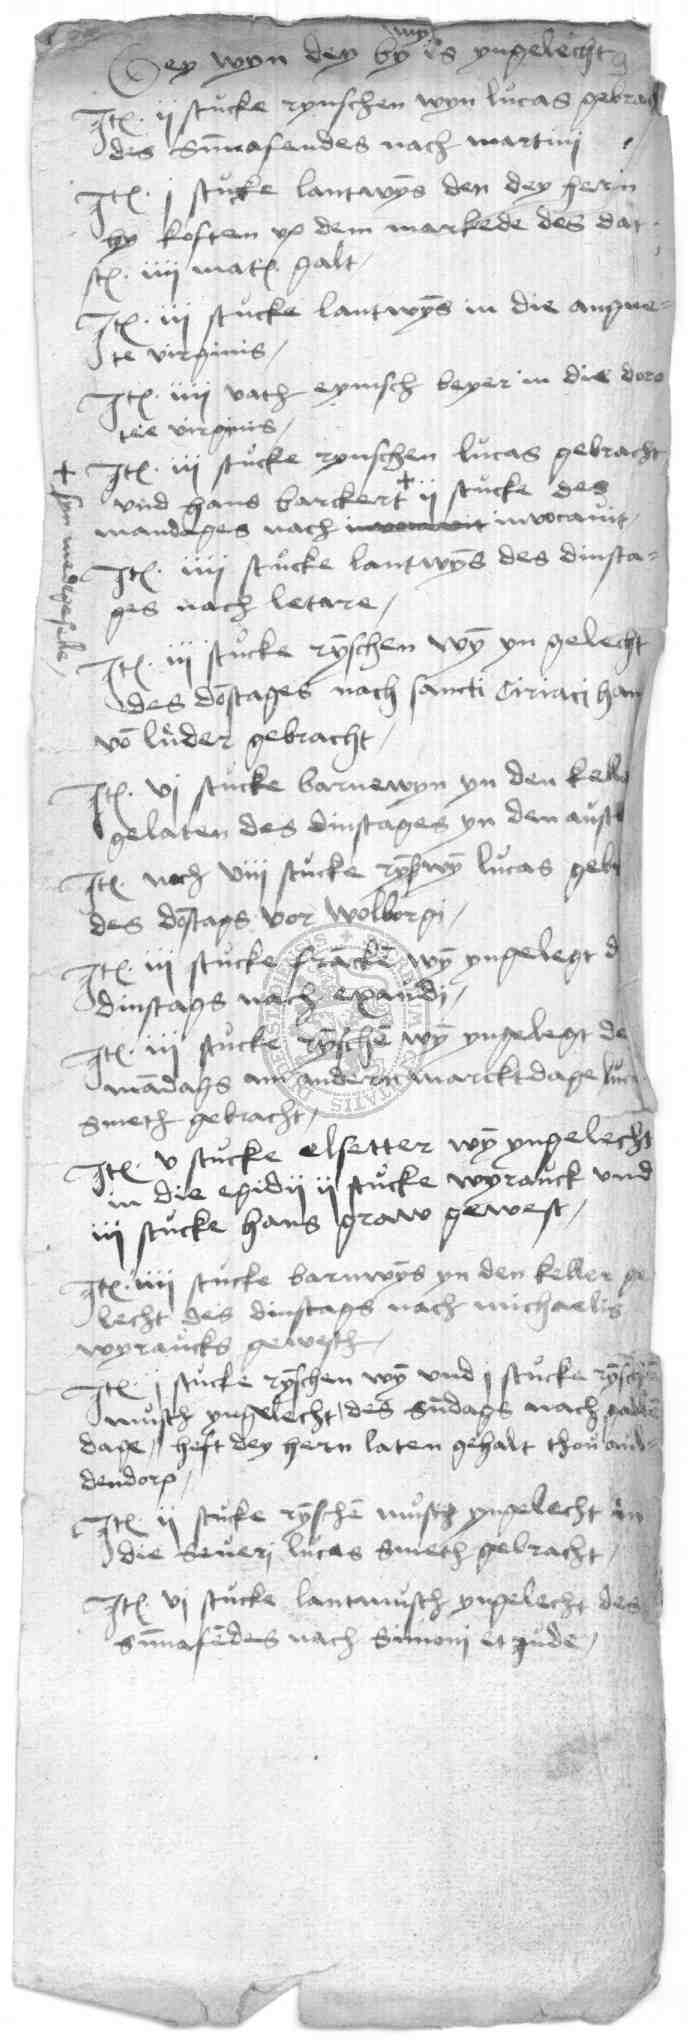 Dey wyn dey by my is yngelecht
Itẽ. ij stůcke rynschen wyn lůcas gebrac
des Sũnafendes nach martinj
Itẽ. j stůcke lantwỹs den dey herñ
hy kosten vp dem markede des dat
stẽ. iiij matẽ. galt
Itẽ. iij stůcke lantwỹs in die angne=
te virginis
Itẽ. iiij vath eymsch beyer in die doro
tee virginis
Itẽ. iij stůcke rynschen lůcas gebracht
vnd hans barckert + ij stůcke des
mandages nach invocauit invocauit
+ syn medegesele
Itẽ. iiij stůcke lantwỹs des dinsta=
ges nach letare
Itẽ. iij stůcke rỹschen wỹ yn gelecht
des dõstages nach sancti Ciriaci han
võ lůder gebracht
Itẽ. vj stůcke barnewyn yn den kelle
gelaten des dinstages yn dem aust
Itẽ. noch viij stůcke rỹswỹ lůcas geb
des dõstags vor wolborgi
Itẽ. iij stůcke frãckẽ wỹ yngelegt d
dinstags nach exaudi
Itẽ. iij stůcke rỹschẽ wỹ yngelegt de
mãdahs am andern marcktdage luc
Smeth gebracht
Itẽ. v stůcke elsetter wỹ yngelecht
in die egidij ij stůcke wyrauck vnd
iij stůcke hans graw gewest
Itẽ. iiij stůcke barnwỹs yn den keller ge
lecht des dinstags nach michaelis
wyraucks gewesth
Itẽ. j stůcke rỹschen wỹ vnd j stůcke rỹschẽ
můsth yngelecht des Sũdags nach gallen
dage heft dey hern laten gehalt thou aul=
dendorp
Itẽ. ij stůcke rỹschẽ můsth yngelecht in
die Seuerj lůcas Smeth gebracht
Itẽ. vj stůcke lantmusth yngelecht des
Sũnafẽdes nach Simonj et Jude